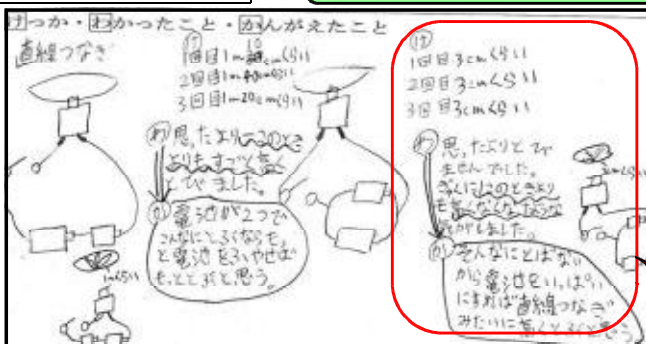 けっか・わかったこと・かんがえたこと
直線つなぎ
け
1回目1m10cmくらい
2回目1m くらい
3回目1m20cmくらい
わ 思ったより一このとき
よりもすごく高く
とびました。
か 電池が2つで
こんなにとぶならも
っと電池をふやせば
もっととぶと思う。
1mくらい
け
1回目3cmくらい
2回目3cmくらい
3回目3cmくらい
わ 思ったよりとび
ませんでした。
ぎゃくに1このときより
も高くなくなったような
気がしました。
か そんなにとばない
から電池をいっぱい
にすれば直線つなぎ
みたいに高くとぶと思う
3cmくらい